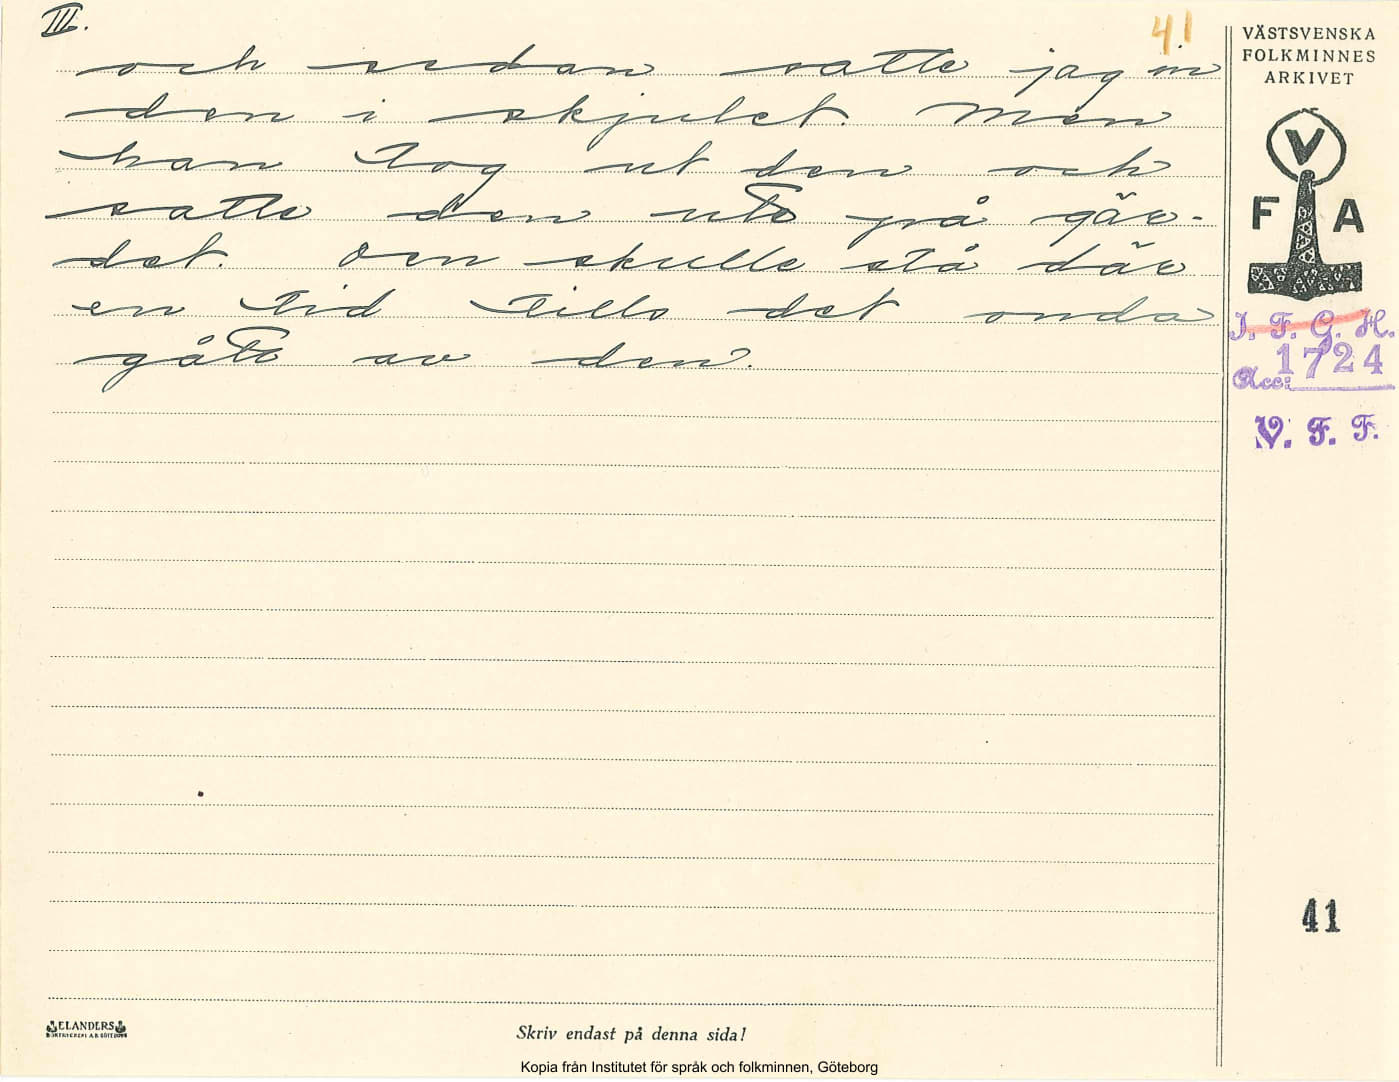 III.
41
och sedan satte jag in
den i skjulet. Men
han tog ut den och
satte den ute på gär-
det. Den skulle stå där
en tid tills det onda
gått av den.
VÄSTSVENSKA
FOLKMINNES
ARKIVET
V
F A
I. F. G. H.
1724
Acc:
V. F. F.
41
ELANDERS
BOKTRYCKERI A.B. GÖTEBORG
Skriv endast på denna sida!
Kopia från Institutet för språk och folkminnen, Göteborg